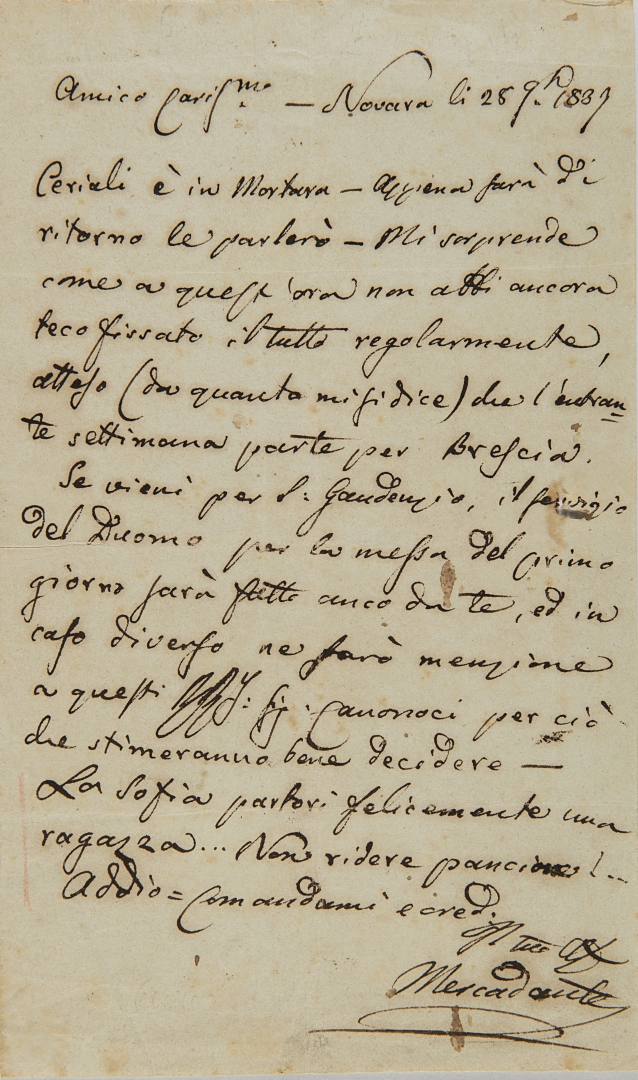 Amico Cariss.mo — Novara li 28 9.b 1837
Ceriali è in Mortara — Appena sarà di
ritorno le parlerò — Mi sorprende
come a quest'ora non abbi ancora
teco fissato il tutto regolarmente,
atteso (da quanto mi si dice) che l'entran=
te settimana parte per Brescia.
Se vieni per S: Gaudenzio, il servizio
del Duomo per la messa del primo
giorno sarà fatto anco da te, ed in
caso diverso ne farò menzione
a questi Sig: Canonoci per ciò
che stimeranno bene decidere —
La Sofia partorì felicemente una
ragazza... Non ridere pancione!...
Addio = Comandami e cred.
Il tuo
Mercadante